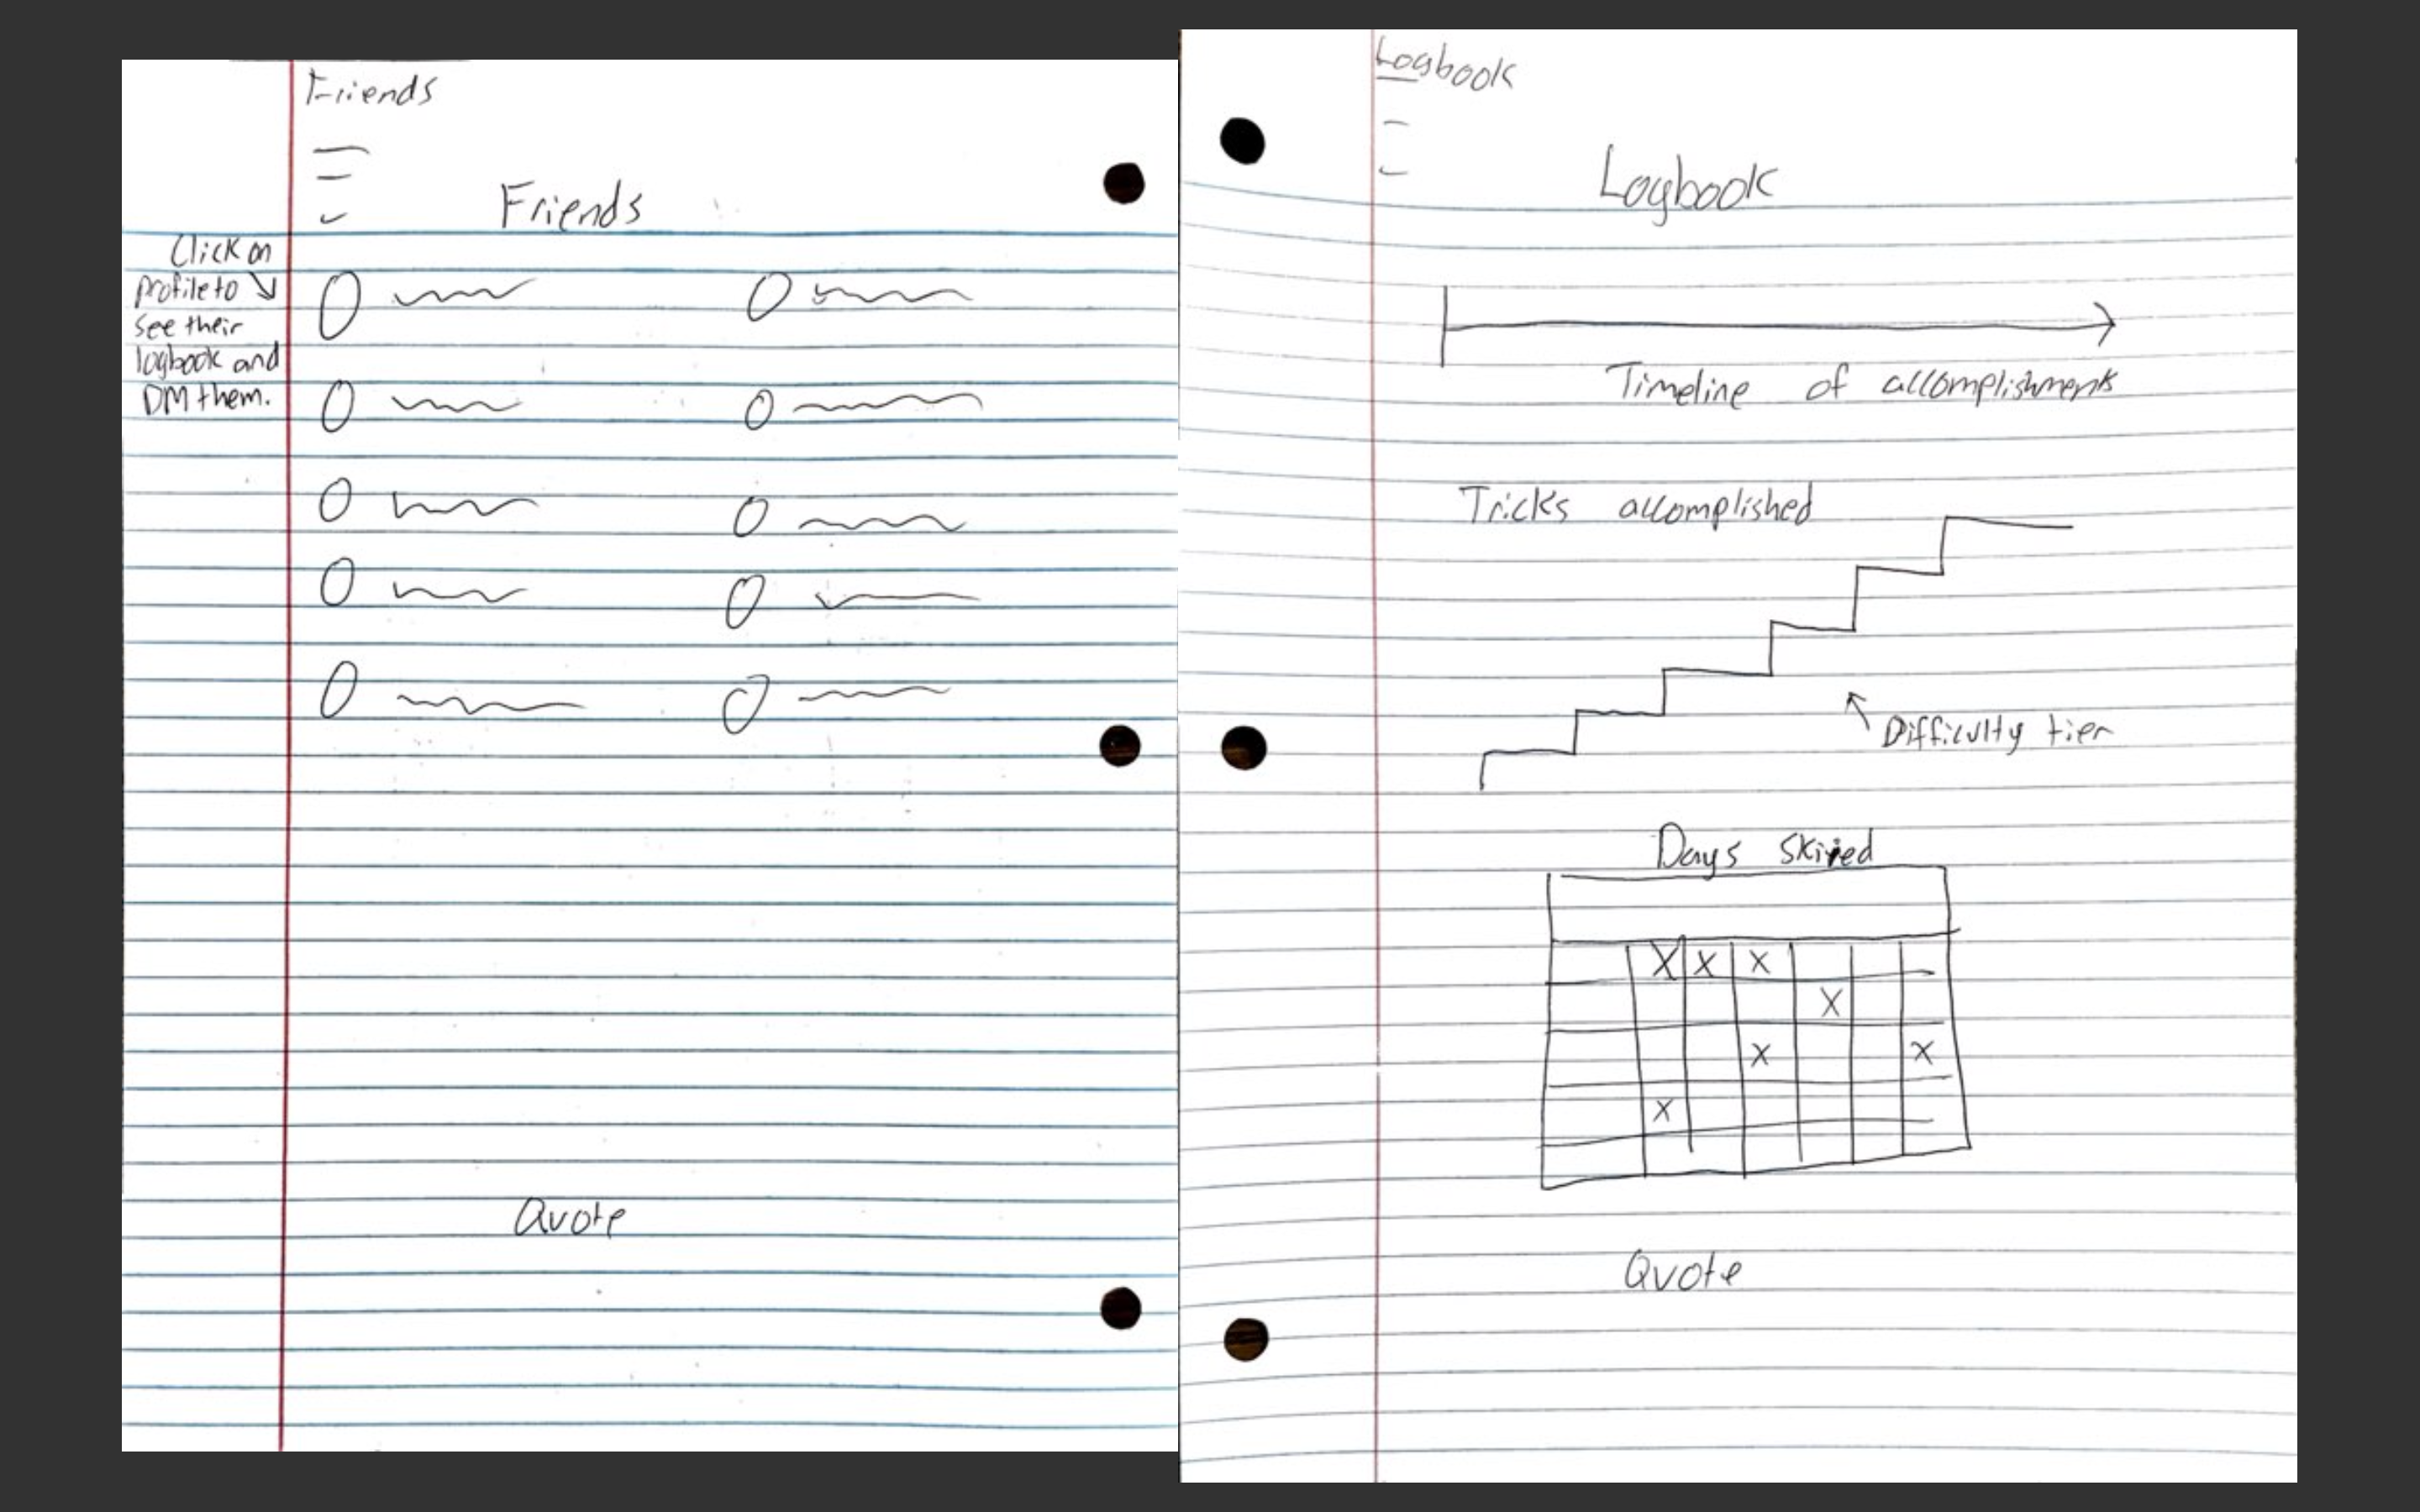 Friends
Friends
Click on
profile to
see their
logbook and
DM them.
Quote
Logbook
Logbook
Timeline of accomplishments
Tricks accomplished
Difficulty tier
Days Skiied
X X X
X
X X
X
Quote